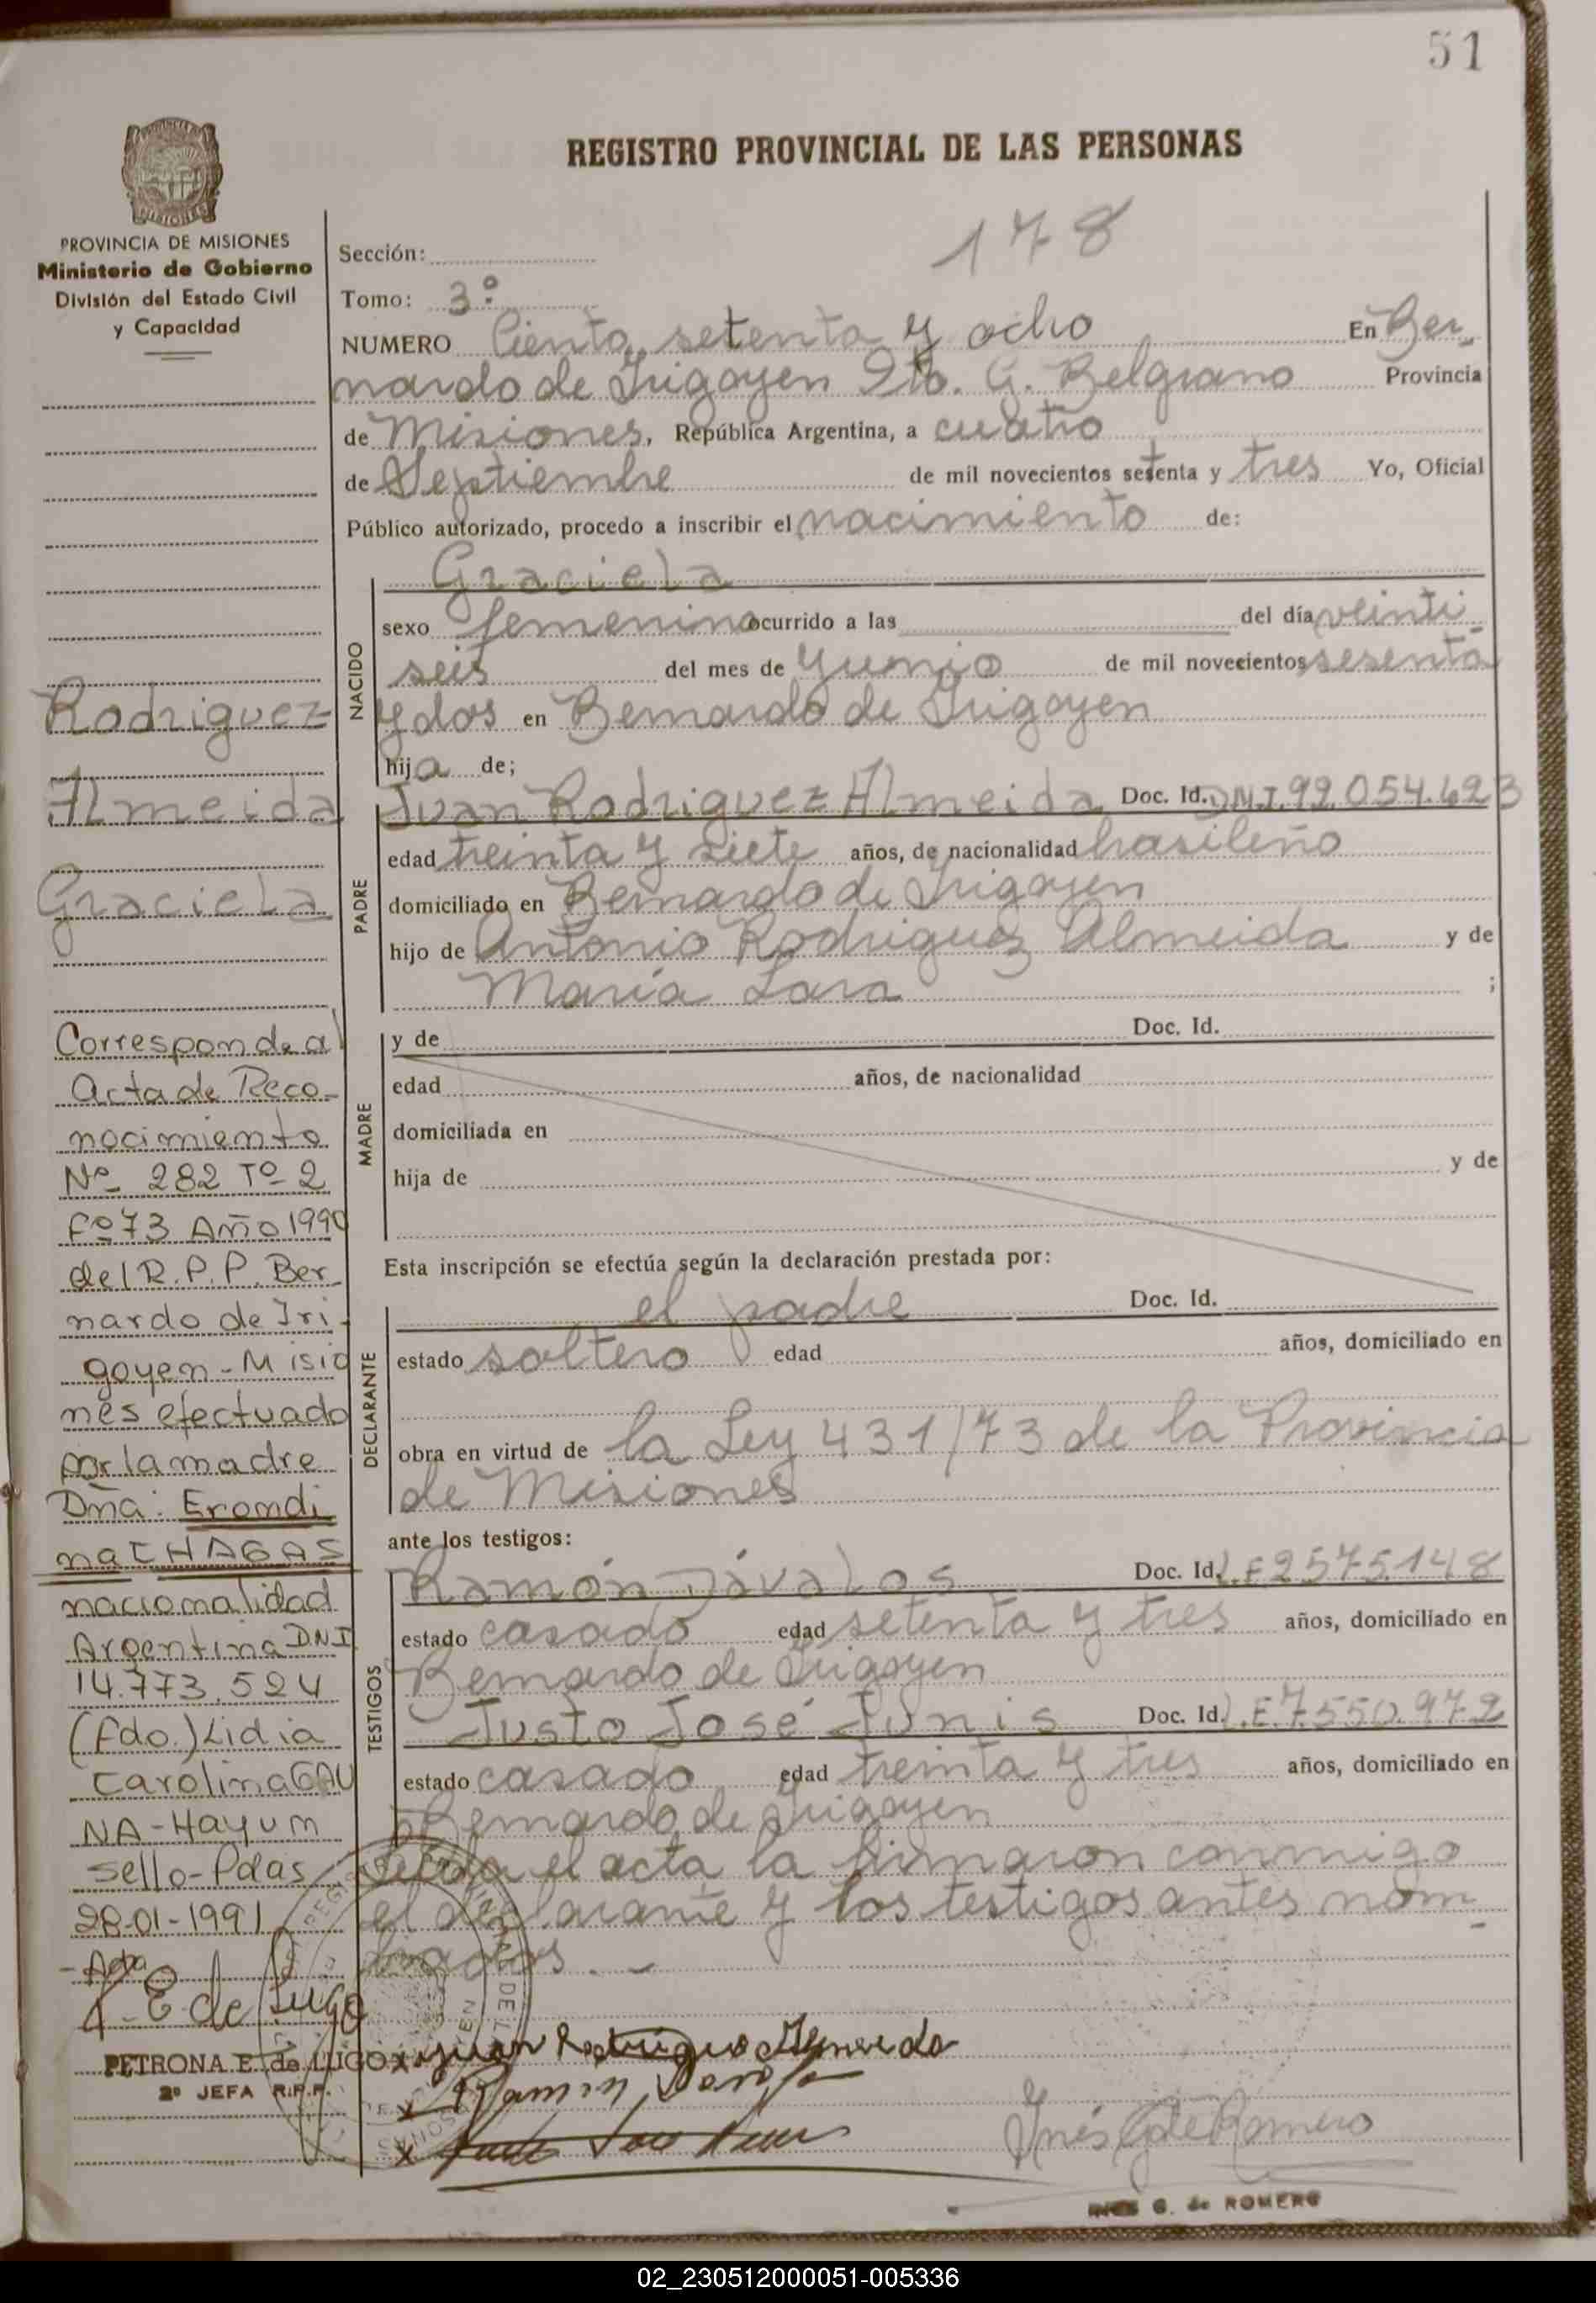 51
REGISTRO PROVINCIAL DE LAS PERSONAS
PROVINCIA DE MISIONES
Ministerio de Gobierno
División del Estado Civil
y Capacidad
178
Sección:
Tomo: 3º
NUMERO Ciento setenta y ocho En Ber_
nardo de Irigoyen Dto. G. Belgrano Provincia
de Misiones, República Argentina, a cuatro
de Septiembre de mil novecientos setenta y tres Yo, Oficial
Público autorizado, procedo a inscribir el nacimiento de:
Graciela
NACIDO
sexo femenino ocurrido a las del día veinti_
seis del mes de Yunio de mil novecientos sesenta
y dos en Bernardo de Irigoyen
hija de;
PADRE
Juan Rodriguez Almeida Doc. Id. D.N.I. 92.054.623
edad treinta y siete años, de nacionalidad brasileño
domiciliado en Bernardo de Irigoyen
hijo de Antonio Rodriguez Almeida y de
María Lara ;
MADRE
y de Doc. Id.
edad años, de nacionalidad
domiciliada en
hija de y de
Esta inscripción se efectúa según la declaración prestada por:
DECLARANTE
el padre Doc. Id.
estado soltero edad años, domiciliado en
obra en virtud de la Ley 431/73 de la Provincia
de Misiones
ante los testigos:
TESTIGOS
Ramón Dávalos Doc. Id. L.E 2575.148
estado casado edad setenta y tres años, domiciliado en
Bernardo de Irigoyen
Justo José Junis Doc. Id. L.E. 7.550.972
estado casado edad treinta y tres años, domiciliado en
Bernardo de Irigoyen
Leída el acta la firmaron conmigo
el declarante y los testigos antes nom_
brados. _
Rodriguez
Almeida
Graciela
Corresponde al
Acta de Reco_
nocimiento
Nº 282 Tº 2
Fº 73 Año 1990
del R.P.P. Ber_
nardo de Iri_
goyen - Misio
nes efectuado
por la madre
Dña: Erondi
na CHAGAS
nacionalidad
Argentina D.N.I
14.773.524
(Fdo.) Lidia
Carolina GAU
NA - Hayum
sello - Pdas
28-01-1991
E de Lugo
PETRONA E. de LUGO
2º JEFA R.P.P.
x Juan Rodriguez Almeida
x Ramón
x Justo José
Inés G de Romero
INES G. de ROMERO
02_230512000051-005336